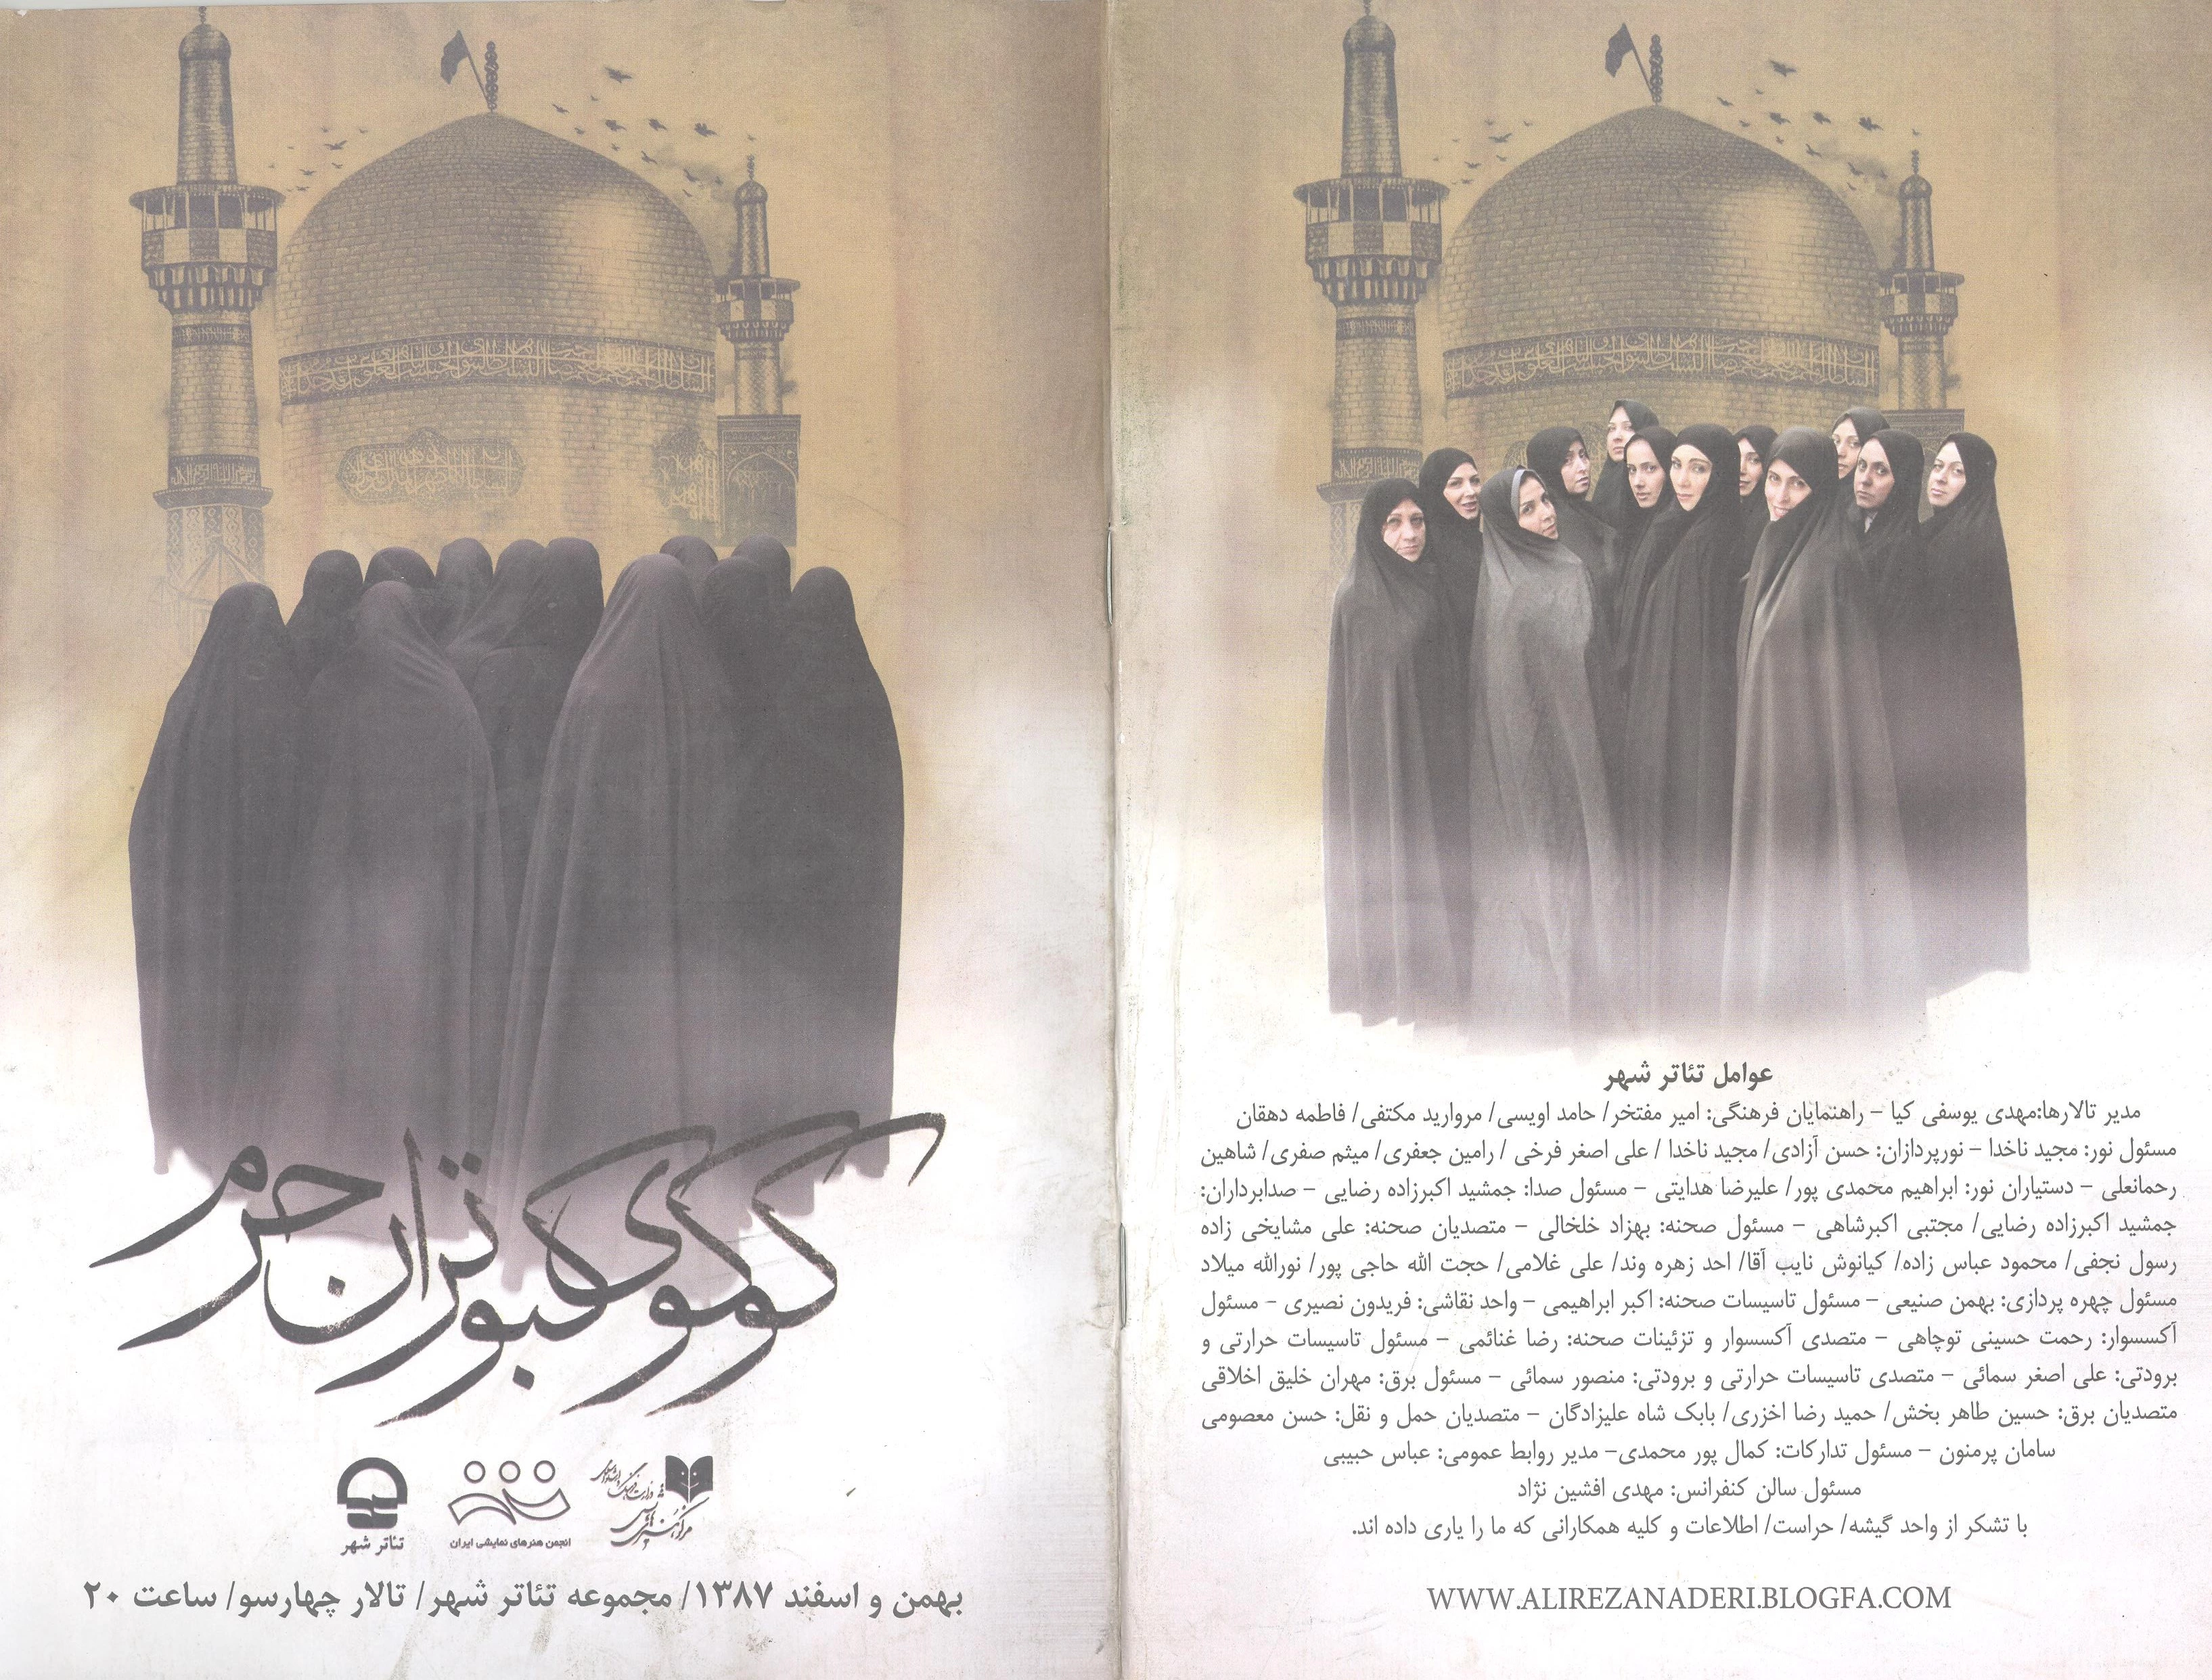 کوکوی کبوتران حرم
مرکز هنرهای نمایشی
تئاتر شهر
انجمن هنرهای نمایشی ایران
بهمن و اسفند ۱۳۸۷/ مجموعه تئاتر شهر/ تالار چهارسو/ ساعت ۲۰
عوامل تئاتر شهر
مدیر تالارها:مهدی یوسفی کیا – راهنمایان فرهنگی: امیر مفتخر/ حامد اویسی/ مروارید مکتفی/ فاطمه دهقان
مسئول نور: مجید ناخدا – نورپردازان: حسن آزادی/ مجید ناخدا / علی اصغر فرخی / رامین جعفری/ میثم صفری/ شاهین
رحمانعلی – دستیاران نور: ابراهیم محمدی پور/ علیرضا هدایتی – مسئول صدا: جمشید اکبرزاده رضایی – صدابرداران:
جمشید اکبرزاده رضایی/ مجتبی اکبرشاهی – مسئول صحنه: بهزاد خلخالی – متصدیان صحنه: علی مشایخی زاده
رسول نجفی/ محمود عباس زاده/ کیانوش نایب آقا/ احد زهره وند/ علی غلامی/ حجت الله حاجی پور/ نورالله میلاد
مسئول چهره پردازی: بهمن صنیعی – مسئول تاسیسات صحنه: اکبر ابراهیمی – واحد نقاشی: فریدون نصیری – مسئول
آکسسوار: رحمت حسینی توچاهی – متصدی آکسسوار و تزئینات صحنه: رضا غنائمی – مسئول تاسیسات حرارتی و
برودتی: علی اصغر سمائی – متصدی تاسیسات حرارتی و برودتی: منصور سمائی – مسئول برق: مهران خلیق اخلاقی
متصدیان برق: حسین طاهر بخش/ حمید رضا اخزری/ بابک شاه علیزادگان – متصدیان حمل و نقل: حسن معصومی
سامان پرمنون – مسئول تدارکات: کمال پور محمدی– مدیر روابط عمومی: عباس حبیبی
مسئول سالن کنفرانس: مهدی افشین نژاد
با تشکر از واحد گیشه/ حراست/ اطلاعات و کلیه همکارانی که ما را یاری داده اند.
WWW.ALIREZANADERI.BLOGFA.COM